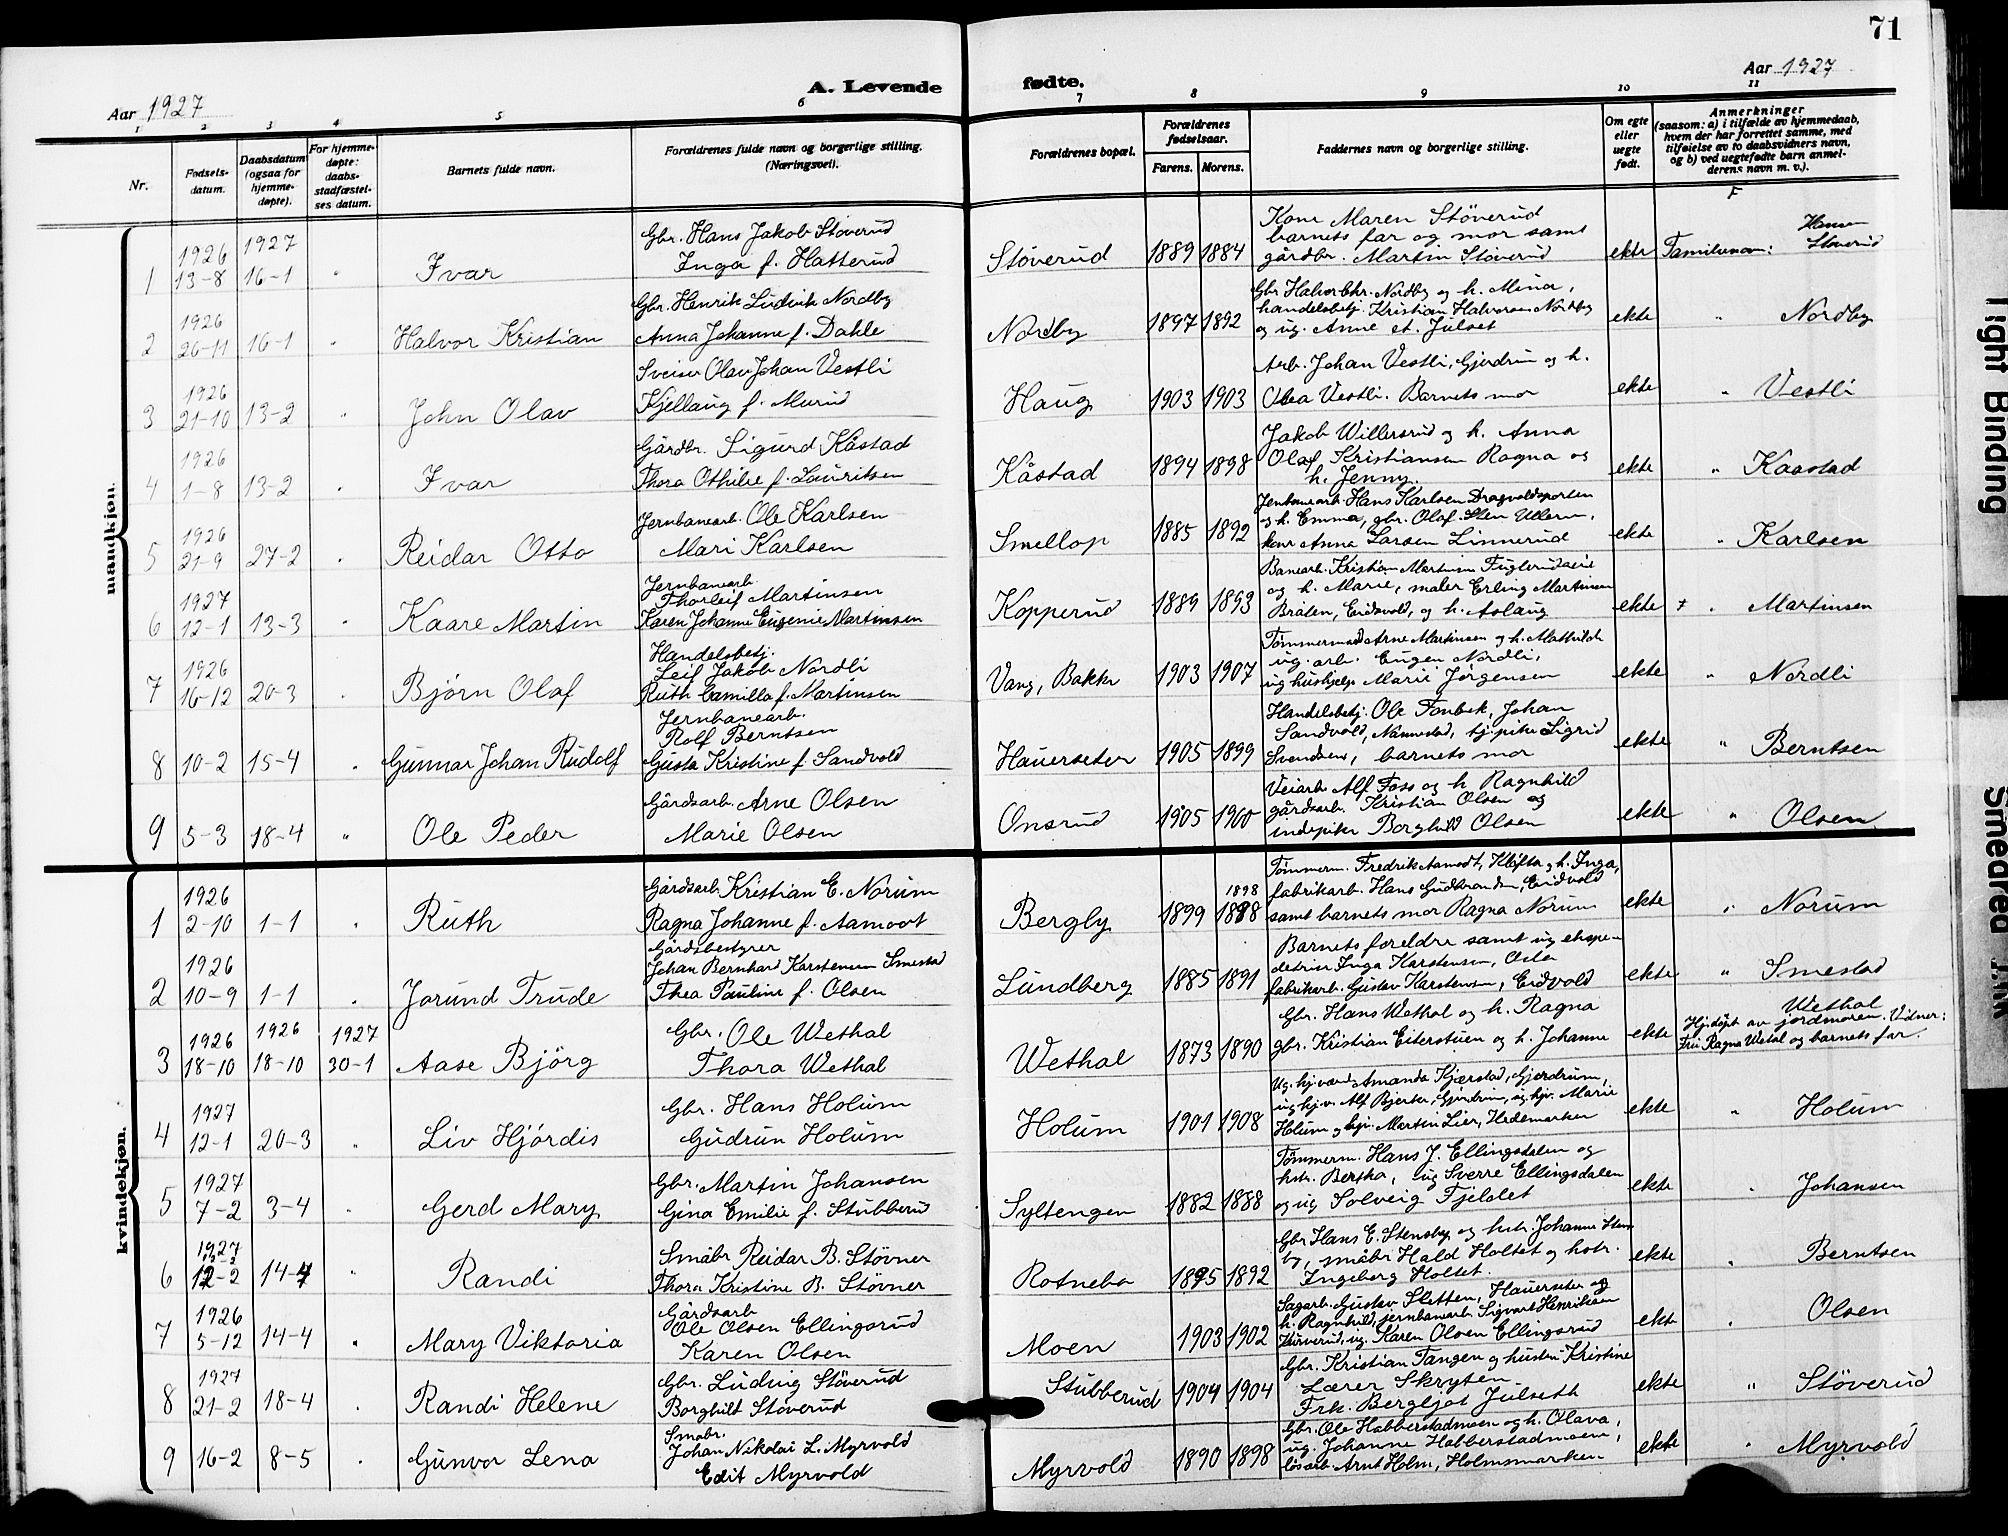 71
A. Levende fødte.
Aar 1927
Aar 1927
1 2 3 4 5 6 7 8 9 10 11
Nr.
Fødsels-
datum.
Daabsdatum
(ogsaa for
hjemme-
døpte).
For hjemme-
døpte:
daabs-
stadfæstel-
ses datum.
Barnets fulde navn.
Forældrenes fulde navn og borgerlige stilling.
(Næringsvei).
Forældrenes bopæl.
Forældrenes
fødselsaar.
Farens. Morens.
Faddernes navn og borgerlige stilling.
Om egte
eller
uegte
født.
Anmerkninger
(saasom: a) i tilfælde av hjemmedaab,
hvem der har forrettet samme, med
tilføielse av to daabsvidners navn,
og b) ved uegtefødte barn anmel-
derens navn m. v.).
mandkjøn.
1 1926 13-8 1927 16-1 " Ivar
Gbr. Hans Jakob Støverud
Inga f. Hatterud
Støverud 1889 1884
Kone Maren Støverud
barnets far og mor samt
gårdbr. Martin Støverud
ekte Familienavn: Støverud
2 1926 26-11 16-1 " Halvor Kristian
Gbr. Henrik Ludvik Nordby
Anna Johanne f. Dahle
Nordby 1897 1892
Gbr Halvor Chr. Nordby og h. Mina,
handelsbetj. Kristian Halvorsen Nordby
og ug. Anne Julset
ekte " Nordby
3 1926 21-10 13-2 " John Olav
Sveiser Olav Johan Vestli
Kjellaug f. Murud
Haug 1903 1903
Arb. Johan Vestli, Gjerdrum og h.
Olea Vestli. Barnets mor
ekte " Vestli
4 1926 1-8 13-2 " Ivar
Gårdbr. Sigurd Kåstad
Thora Othilie f. Lauritsen
Kåstad 1894 1898
Jakob Willersrud og h. Anna
Olaf Kristiansen Ragna og
h. Jenny.
ekte " Kaastad
5 1926 21-9 27-2 " Reidar Otto
Jernbanearb. Ole Karlsen
Mari Karlsen
Smellop 1885 1892
Jernbanearb. Hans Karlsen Dragvoldsporten
og h. Emma, gbr. Olaf Sten Ullern,
kone Anna Larsen Linnerud
ekte " Karlsen
6 1927 12-1 13-3 " Kaare Martin
Jernbanearb.
Thorleif Martinsen
Karen Johanne Eugenie Martinsen
Kopperud 1889 1893
Banearb. Kristian Martinsen
og h. Marie, maler Erling Martinsen
Bråten, Eidsvold, og h. Aslaug
ekte " Martinsen
7 1926 16-12 20-3 " Bjørn Olaf
Handelsbetj.
Leif Jakob Nordli
Ruth Camilla f. Martinsen
Vang, Bakke 1903 1907
Arne Martinsen og h. Mathilde
ug. arb. Eugen Nordli,
ug hushjelp Marie Jørgensen
ekte " Nordli
8 10-2 15-4 " Gunnar Johan Rudolf
Jernbanearb.
Rolf Berntsen
Gusta Kristine f. Sandvold
Hauerseter 1905 1899
Handelsbetj. Ole Fonbek, Johan
Sandvold, Nannestad, tj.pike Sigrid
Svendsen, barnets mor
ekte " Berntsen
9 5-3 18-4 " Ole Peder
Gårdsarb. Arne Olsen
Marie Olsen
Onsrud 1905 1900
Veiarb. Alf Foss og h Ragnhild
gårdsarb. Kristian Olsen og
indepike Borghild Olsen
ekte " Olsen
kvindekjøn.
1 1926 2-10 1-1 " Ruth
Gårdsarb. Kristian E. Norum
Ragna Johanne f. Aamodt
Bergly 1899 1898
Tømmerm. Fredrik Aamodt, Kløfta og h. Inga,
fabrikarb. Hans Gudbrandsen, Eidsvold
samt barnets mor Ragna Norum
ekte " Norum
2 1926 10-9 1-1 " Jorund Trude
Gårdsbestyrer
Johan Bernhard Karstensen Smestad
Thea Pauline f. Olsen
Lundberg 1885 1891
Barnets foreldre samt ug ekspe-
ditrise Inga Karstensen, Oslo
fabrikarb. Gustav Karstensen, Eidsvold
ekte " Smestad
3 1926 18-10 1926 18-10 1927 30-1 Aase Bjørg
Gbr. Ole Wethal
Thora Wethal
Wethal 1873 1890
Gbr. Hans Wethal og h. Ragna
gbr. Kristian Eiterstuen og h. Johanne
ekte Wethal
Hj.døpt av jordmoren. Vidner:
Fru Ragna Wetal og barnets far.
4 1927 12-1 20-3 " Liv Hjørdis
Gbr. Hans Holum
Gudrun Holum
Holum 1901 1908
Ug. hj.værd. Amanda Kjærstad, Gjerdrum,
ug. hj.v. Alf Bjerke, Gjerdrum, ug. hjv. Marie
Holum og hjv. Martin Lier, Hedemarken
ekte " Holum
5 1927 7-2 3-4 " Gerd Mary
Gbr. Martin Johansen
Gina Emilie f. Stubberud
Syltengen 1882 1888
Tømmerm. Hans J. Ellingsdalen og
hstr. Bertha, ug Sverre Ellingsdalen
og ug Solveig Fjeldet
ekte " Johansen
6 1927 12-2 14-4 " Randi
Småbr Reidar B. Støvner
Thora Kristine B. Støvner
Rotnebo 1895 1892
Gbr Hans E. Stensby og hstr. Johanne Stens
by, småbr Hald Holtet og hstr.
Ingeborg Holtet.
ekte " Berntsen
7 1926 5-12 14-4 " Mary Viktoria
Gårdsarb
Ole Olsen Ellingsrud
Karen Olsen
Moen 1903 1902
Sagarb. Gustav Sletten, Hauerseter og
h. Ragnhild, jernbanearb. Sigvart Henriksen
ug. Karen Olsen Ellingsrud
ekte " Olsen
8 1927 21-2 18-4 " Randi Helene
Gbr. Ludvig Støverud
Borghilt Støverud
Stubberud 1904 1904
Gbr. Kristian Tangen og hustru Kristine
Lærer Skryten
Frk. Bergljot Julseth
ekte " Støverud
9 16-2 8-5 " Gunvor Lena
Småbr.
Johan Nikolai L. Myrvold
Edit Myrvold
Myrvold 1890 1898
Gbr. Ole Habberstadmoen og h. Olava,
ug. Johanne Habberstadmoen,
løsarb. Arnt Holm, Holmsmarken
ekte " Myrvold
Tight Binding
Smeared Ink